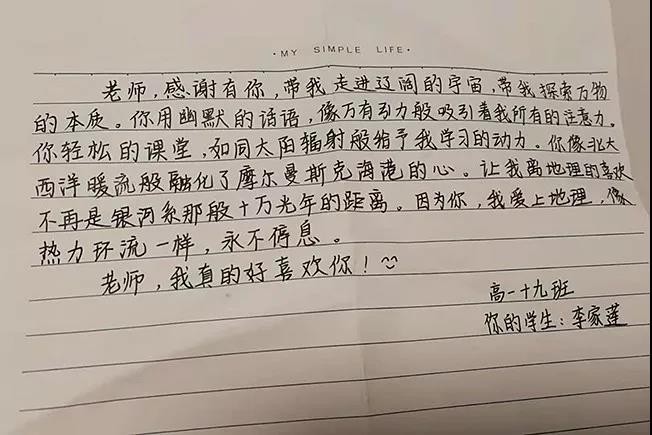 · MY SIMPLE LIFE ·
老师，感谢有你，带我走进辽阔的宇宙，带我探索万物
的本质。你用幽默的话语，像万有引力般吸引着我所有的注意力。
你轻松的课堂，如同太阳辐射般给予我学习的动力。你像北大
西洋暖流般融化了摩尔曼斯克海港的心。让我离地理的喜欢
不再是银河系那般十万光年的距离。因为你，我爱上地理，像
热力环流一样，永不停息。
老师，我真的好喜欢你！☺
高一十九班
你的学生：李家莲